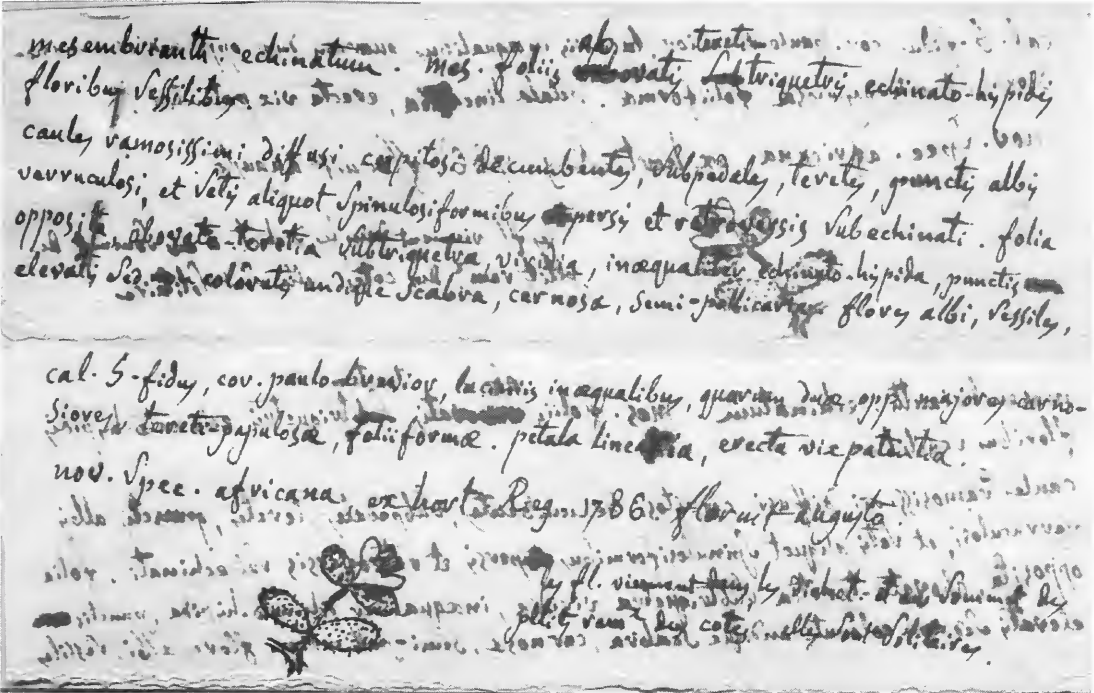 mesembrianth echinatum. Mes. foliis ab ovatis subtriquetris echinato-hispidis
floribus sessilibus.
caules ramosissimi diffusi cespitosi decumbentes, subpedales, teretes, punctis albis
verruculosi, et setis aliquot spinulosiformibus aspersis et retroversis subechinati. folia
opposita obovata-teretia subtriquetra, viridia, inæqualiter echinato-hispida, punctis
elevatis sed coloratis undique scabra, carnosa, semi-pollicaria flores albi, sessiles,
cal. 5-fidus, cor. paulo brevior, laciniis inæqualibus, quarum duæ opp. majores carno-
siores tereti-papulosæ, foliiformæ. petala linearia, erecta vix patentia.
nov. spec. africana ex hort. Reg. 1786 floruit augusto
les fl. viennent dans les dichot. et au sommet des
petits ram. des cotés elles sont solitaires.